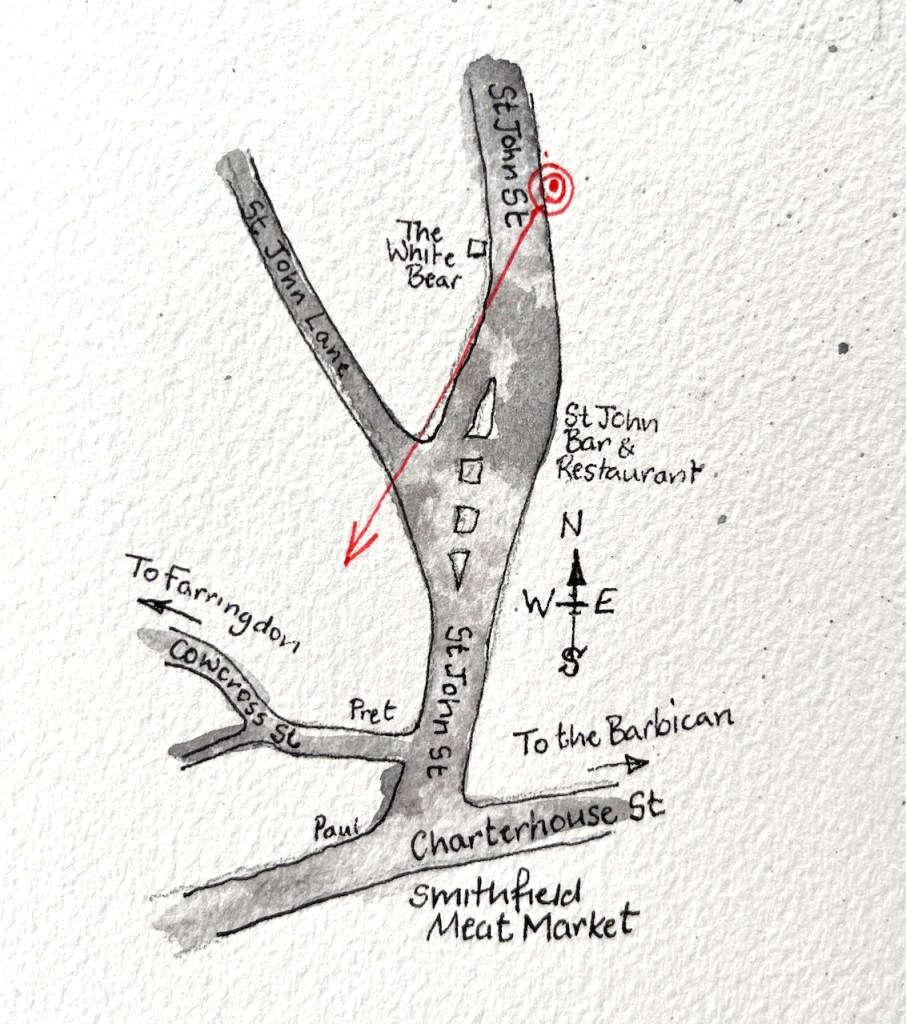 St John St
St John Lane
The
White
Bear
St John
Bar &
Restaurant
N
W E
S
To Farringdon
Cowcross St
Pret
St John St
To the Barbican
Paul
Charterhouse St
Smithfield
Meat Market